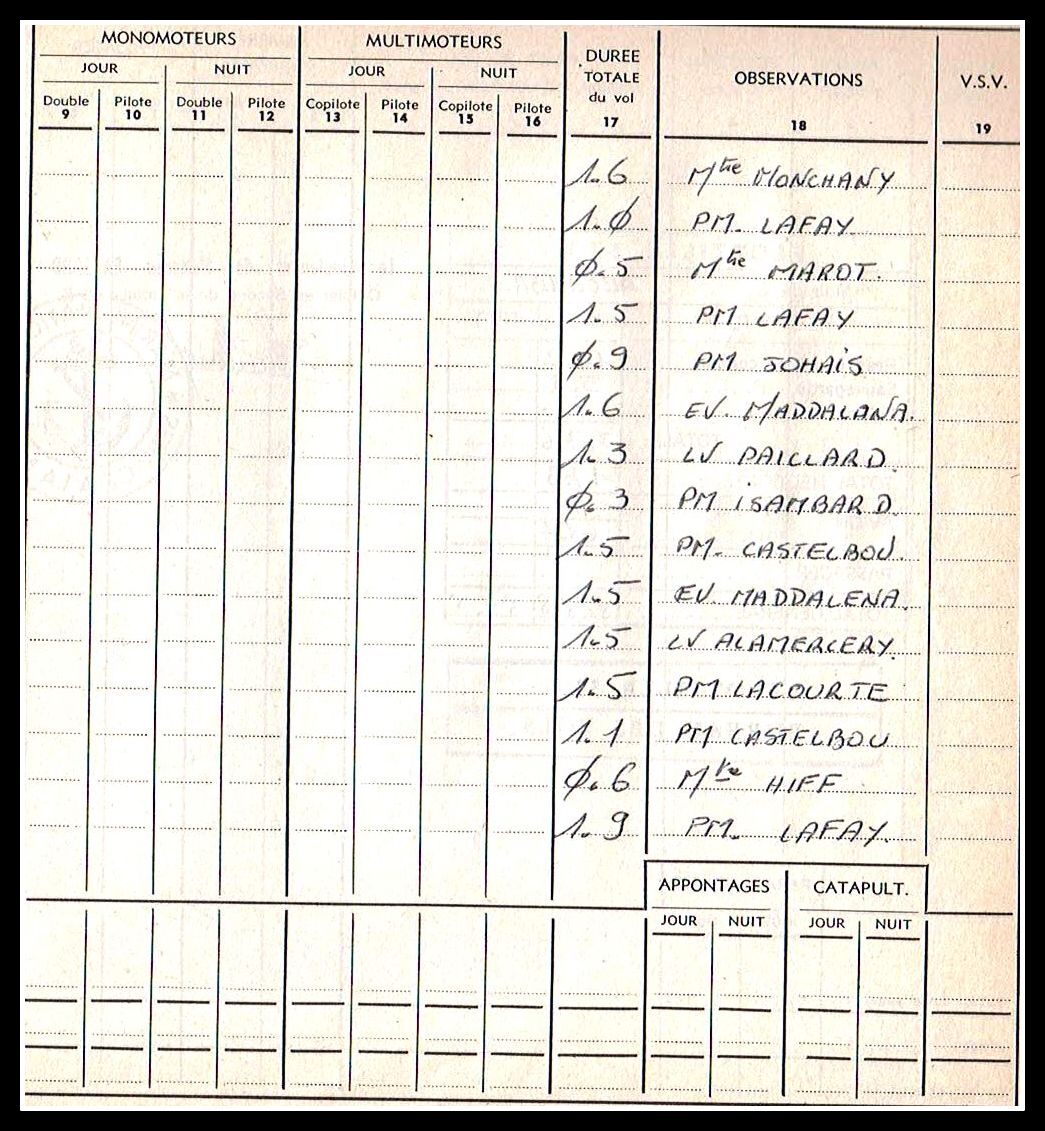 MONOMOTEURS MULTIMOTEURS DURÉE TOTALE du vol OBSERVATIONS V.S.V.
JOUR NUIT JOUR NUIT
Double Pilote Double Pilote Copilote Pilote Copilote Pilote
9 10 11 12 13 14 15 16 17 18 19
1.6 Mtre MONCHANY
1.0 PM. LAFAY
0.5 Mtre MAROT.
1.5 PM LAFAY
0.9 PM JOHAIS
1.6 EV. MADDALANA.
1.3 LV PAILLARD.
0.3 PM ISAMBARD.
1.5 PM. CASTELBOU.
1.5 EV. MADDALENA.
1.5 LV ALAMERCERY.
1.5 PM LACOURTE
1.1 PM CASTELBOU
0.6 Mtre HIFF
1.9 PM. LAFAY.
APPONTAGES CATAPULT.
JOUR NUIT JOUR NUIT